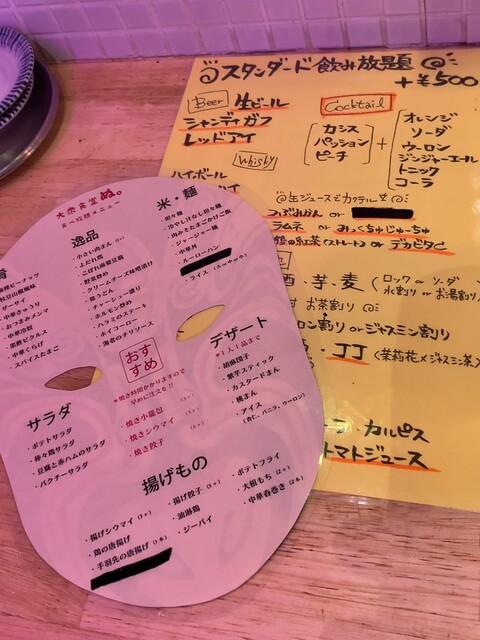 スタンダード飲み放題
+¥500
Beer 生ビール
シャンディガフ
レッドアイ
Cocktail
カシス
パッション
ピーチ
+
オレンジ
ソーダ
ウーロン
ジンジャーエール
トニック
コーラ
Whisky
ハイボール
生ジュースでカクテル
つぶみかん or
ラムネ or みっくちゅじゅーちゅ
の紅茶(ストレート) or デカビタC
酒・芋・麦 (ロック or ソーダ
水割り or お湯割り)
お茶割り
ロン割り or ジャスミン割り
JJ (茉莉花×ジャスミン茶)
カルピス
トマトジュース
大衆食堂 ぬ。
食べ放題メニュー
逸品
・小さい肉まん
・よだれ鶏
・こぼれ麻婆豆腐
・野菜炒め
・クリームチーズ味噌漬け
・腸うどん
・チャーシュー盛り
・ホルモン炒め
・ハラミのステーキ
・ホイコーロー
・海老のチリソース
米・麺
・担々麺
・冷やし汁なし担々麺
・肉みそたまごかけご飯
・ジャージャー麺
・中華丼
・ルーローハン
・ライス
肴
・麻辣ピーナッツ
・枝豆山椒風味
・ザーサイ
・中華きゅうり
・おつまみメンマ
・中華冷奴
・黒酢ピクルス
・中華くらげ
・スパイスたまご
おすすめ
※焼き時間かかりますので
早めに注文を!!
・焼き小籠包
・焼きシウマイ
・焼き餃子
デザート
※1人1品まで
・胡麻団子
・紫芋スティック
・カスタードまん
・桃まん
・アイス
(杏仁、バニラ、ウーロン)
サラダ
・ポテトサラダ
・棒々鶏サラダ
・豆腐と赤ハムのサラダ
・パクチーサラダ
揚げもの
・揚げシウマイ
・鶏の唐揚げ
・手羽先の唐揚げ
・揚げ餃子
・油淋鶏
・ジーパイ
・ポテトフライ
・大根もち
・中華春巻き